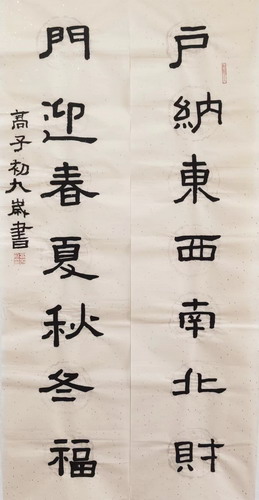 户納東西南北財
門迎春夏秋冬福
髙子初九歲書